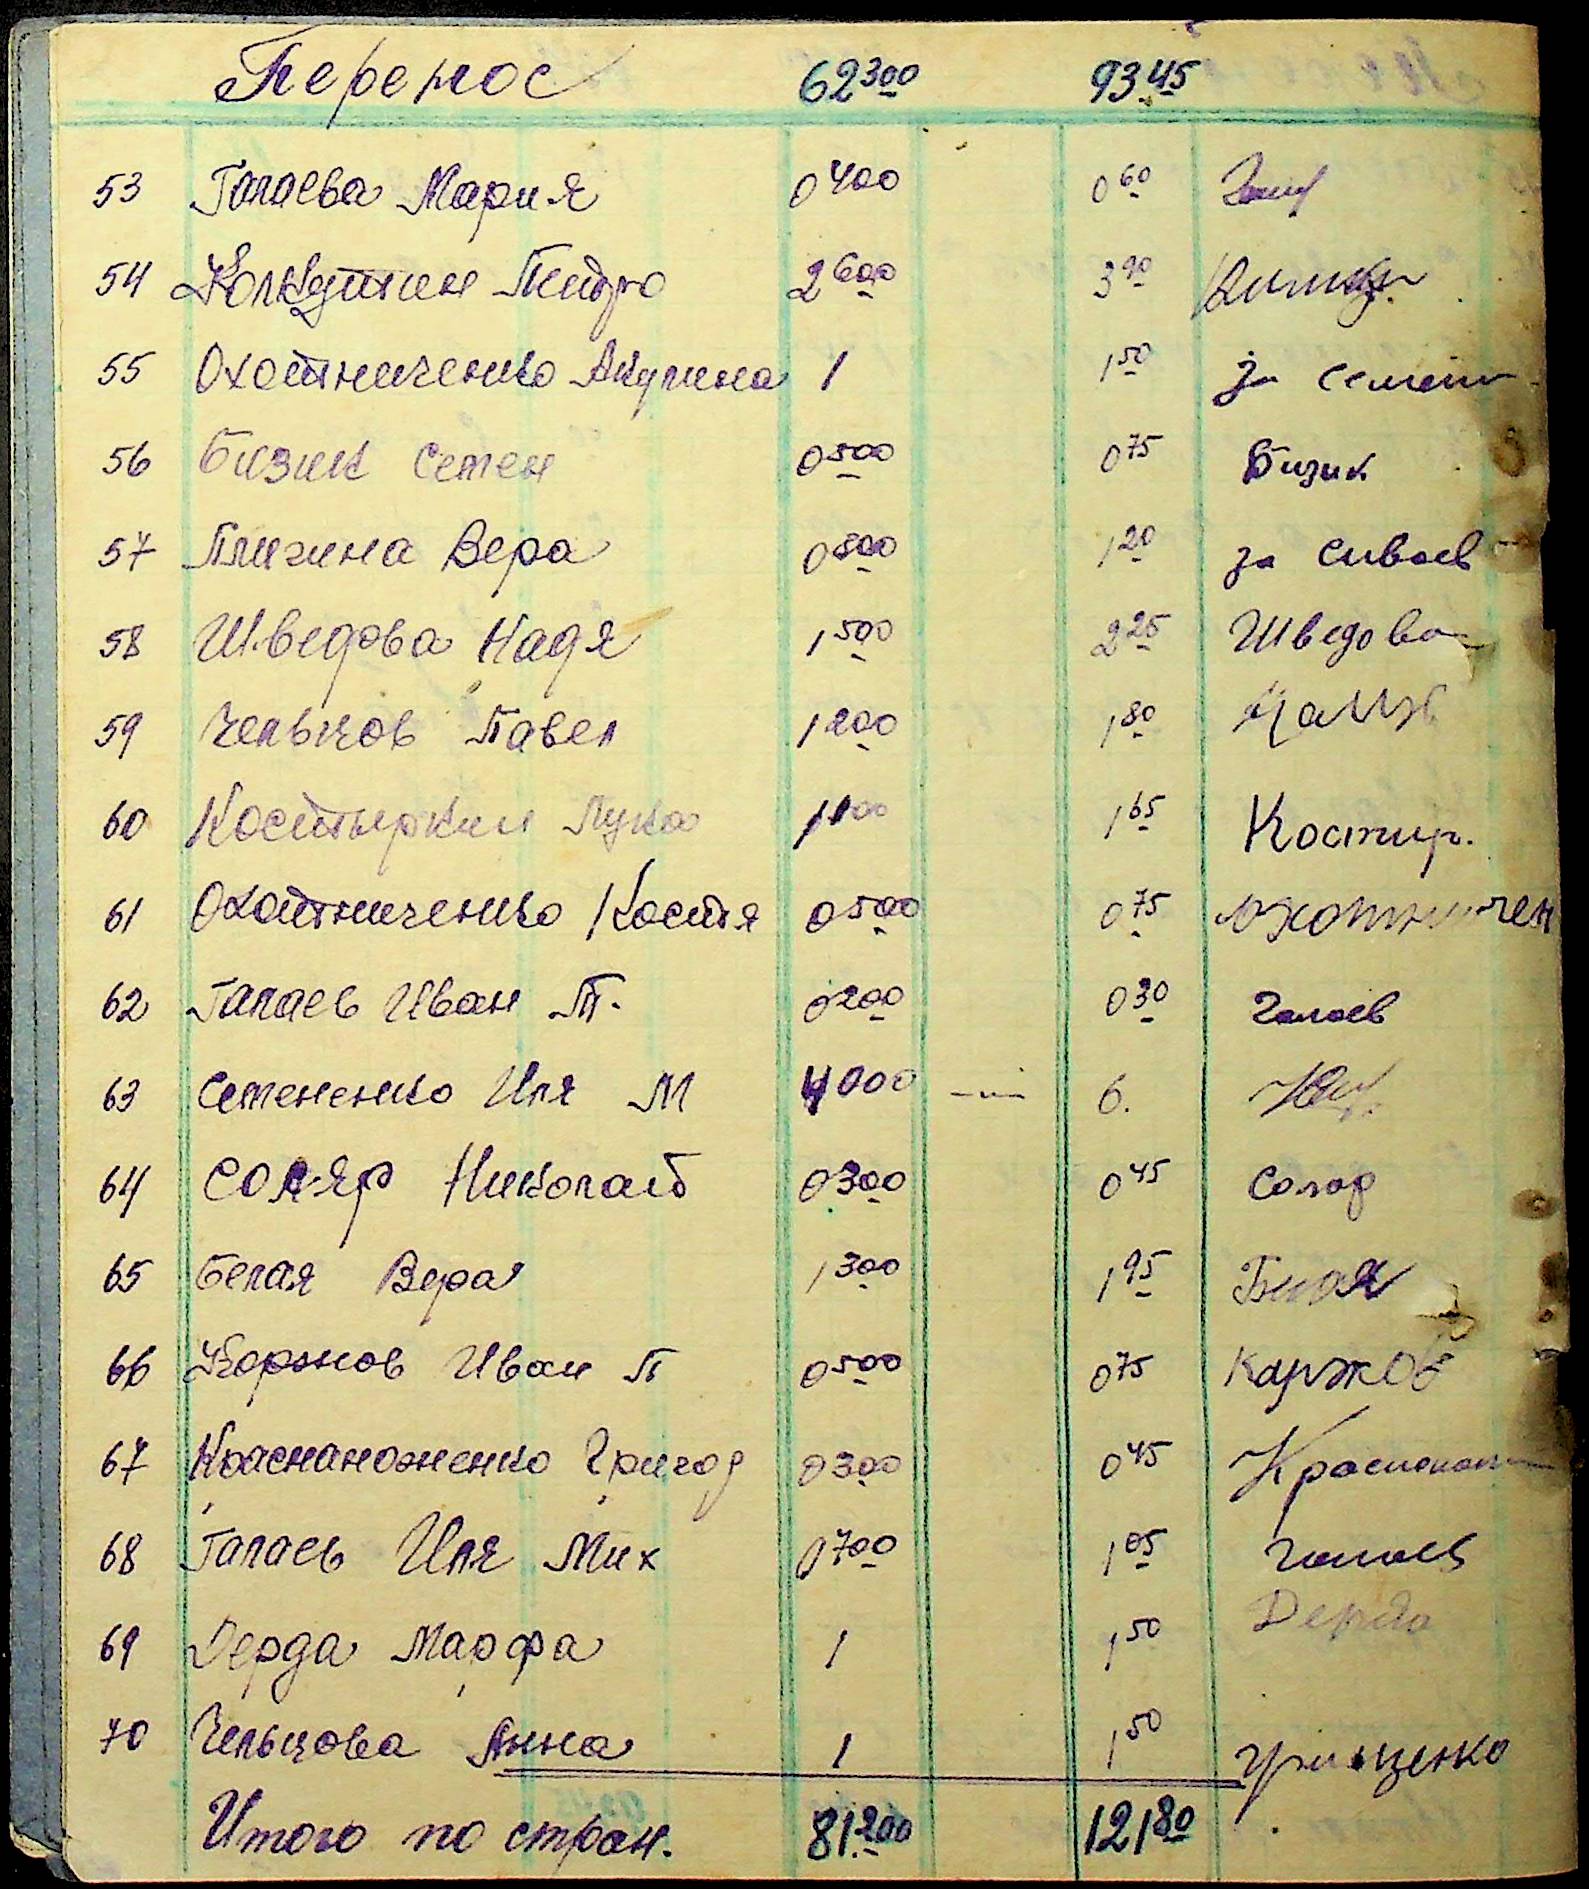 Перенос 62300 93.45
53 Галаева Мария 0400 060
54 Колкутин 2600 390
55 Охотниченко Акулина 1 150 за семени
56 Бизик Семен 0500 075 Бизик
57 Пличина Вера 0800 120 за Сиваев
58 Шведова Надя 1500 225 Шведова
59 Чельцов Павел 1200 180
60 Костыркин Лука 1100 165 Костир.
61 Охотниченко Костя 0500 075 Охотничен
62 Галаев Иван Т. 0200 030 Галаев
63 Семененко Иля М 4000 6.
64 Соляр Николай 0300 045 Соляр
65 Белая Вера 1300 195 Билая
66 Коржов Иван П 0500 075 Каржов
67 Краснаноженко Григор 0300 045
68 Галаев Иля Мих 0700 105 Галаев
69 Дерда Марфа 1 150 Дерда
70 Чельцова Анна 1 150 Грищенко
Итого по стран. 81.200 12180